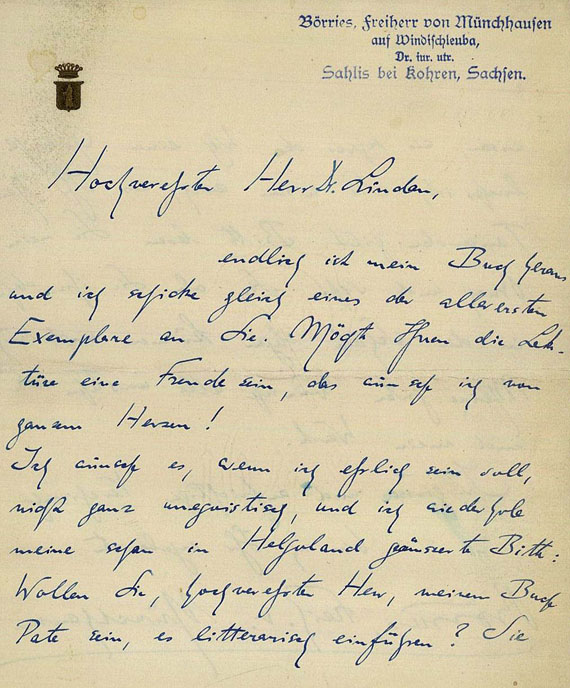 Börries, Freiherr von Münchhausen
auf Windischleuba,
Dr. iur. utr.
Sahlis bei Kohren, Sachsen.
Hochverehrter Herr Dr. Linden,
endlich ist mein Buch heraus
und ich schicke gleich eines der allerersten
Exemplare an Sie. Möge Ihnen die Lek-
türe eine Freude sein, das wünsche ich von
ganzem Herzen!
Ich wünsche es, wenn ich ehrlich sein soll,
nicht ganz unegoistisch, und ich wiederhole
meine schon in Helgoland geäusserte Bitte:
Wollen Sie, hochverehrter Herr, meinem Buche
Pate sein, es litterarisch einführen? Sie